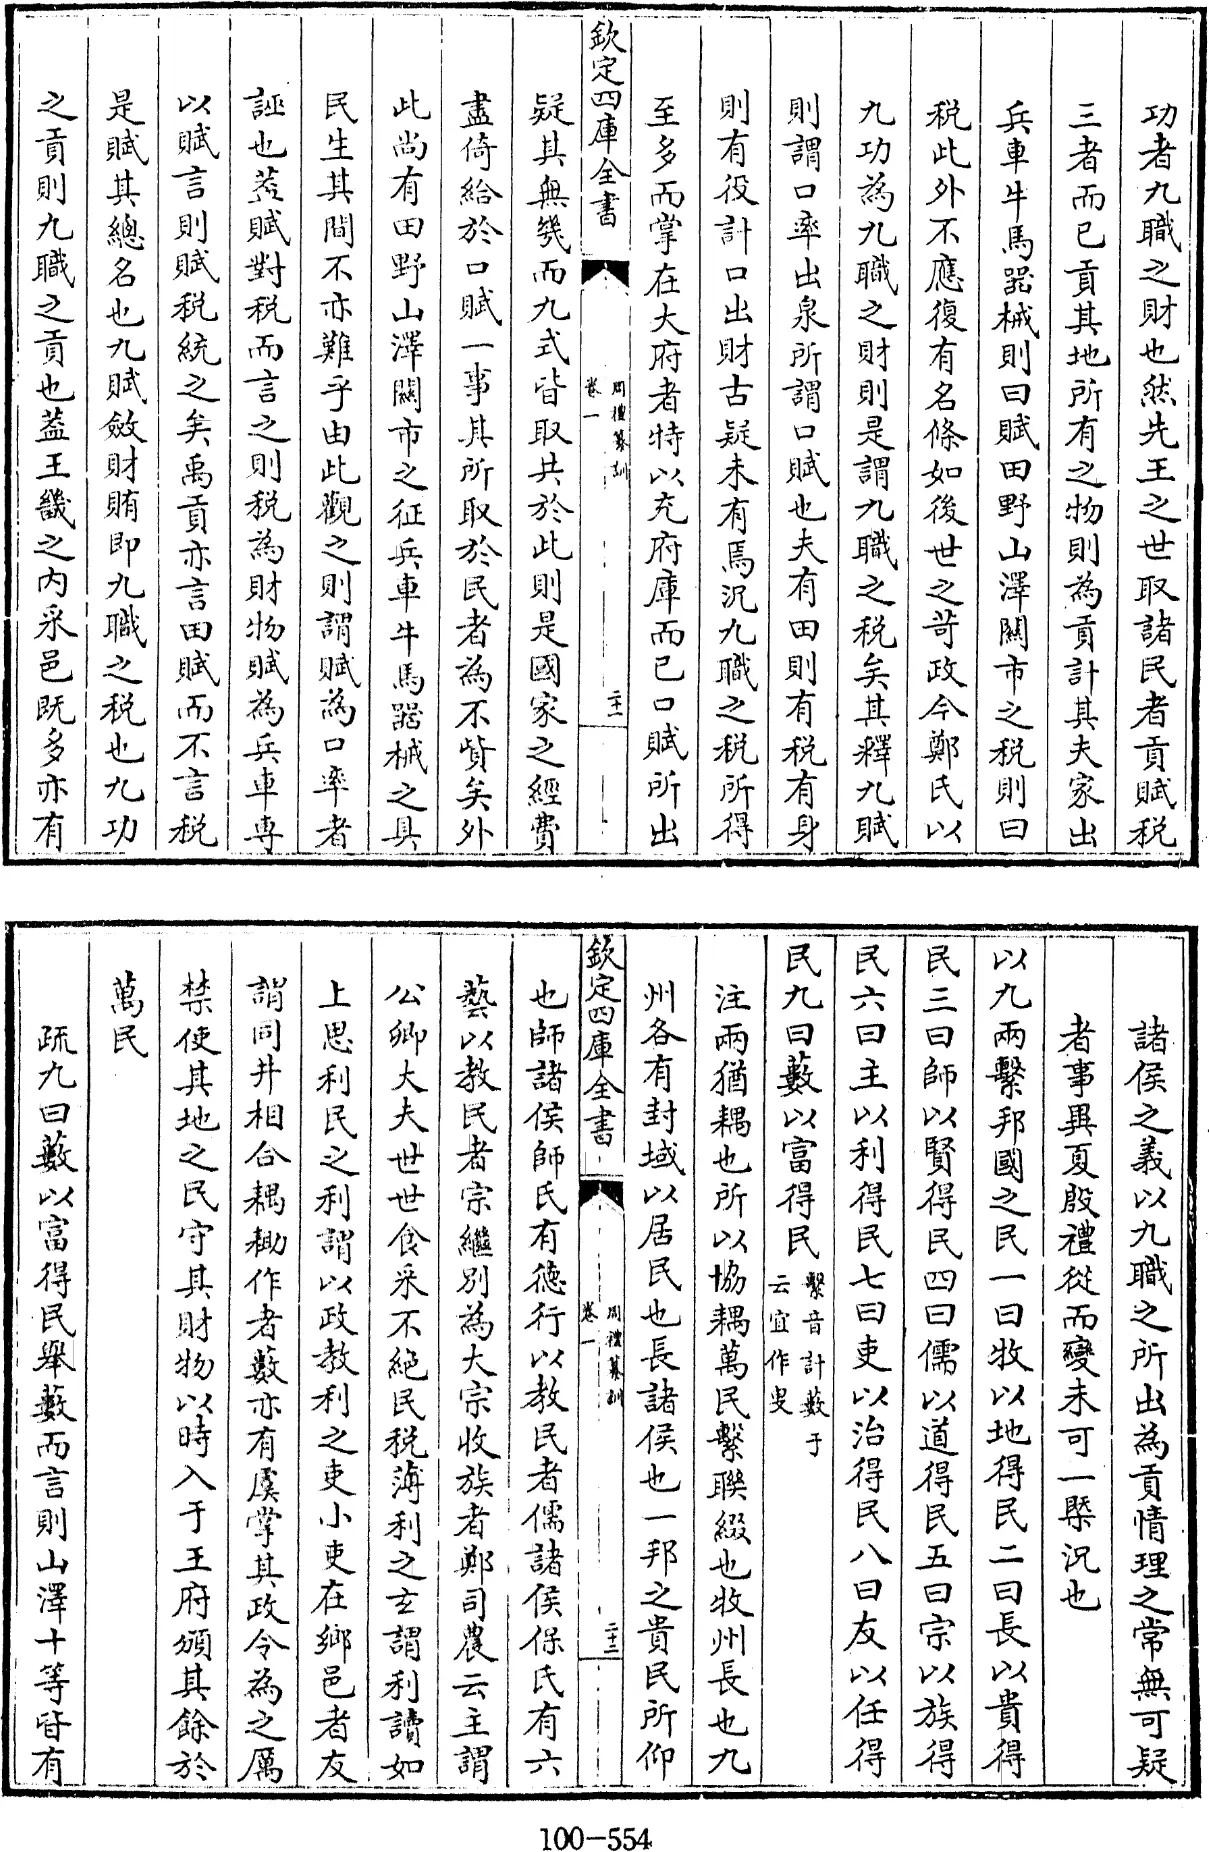 功者九職之財也然先王之世取諸民者貢賦税
三者而已貢其地所有之物則為貢計其夫家出
兵車牛馬器械則曰賦田野山澤關市之税則曰
税此外不應復有名條如後世之苛政今鄭氏以
九功為九職之財則是謂九職之税矣其釋九賦
則謂口率出泉所謂口賦也夫有田則有税有身
則有役計口出財古疑未有焉況九職之税所得
至多而掌在大府者特以充府庫而已口賦所出
欽定四庫全書
周禮纂訓
卷一
二十二
疑其無㡬而九式皆取共於此則是國家之經費
盡倚給於口賦一事其所取於民者為不貲矣外
此尚有田野山澤關市之征兵車牛馬器械之具
民生其間不亦難乎由此觀之則謂賦為口率者
誣也葢賦對税而言之則税為財物賦為兵車專
以賦言則賦税統之矣禹貢亦言田賦而不言税
是賦其總名也九賦斂財賄即九職之税也九功
之貢則九職之貢也葢王畿之内采邑既多亦有
諸侯之義以九職之所出為貢情理之常無可疑
者事異夏殷禮從而變未可一槩況也
以九兩繫邦國之民一曰牧以地得民二曰長以貴得
民三曰師以賢得民四曰儒以道得民五曰宗以族得
民六曰主以利得民七曰吏以治得民八曰友以任得
民九曰藪以富得民繫音計藪于
云宜作叟
注兩猶耦也所以協耦萬民繫聯綴也牧州長也九
州各有封域以居民也長諸侯也一邦之貴民所仰
欽定四庫全書
周禮纂訓
卷一
二十三
也師諸侯師氏有德行以教民者儒諸侯保氏有六
藝以教民者宗繼别為大宗收族者鄭司農云主謂
公卿大夫世世食采不絶民税薄利之玄謂利讀如
上思利民之利謂以政教利之吏小吏在鄉邑者友
謂同井相合耦耡作者藪亦有虞掌其政令為之厲
禁使其地之民守其財物以時入于王府頒其餘於
萬民
疏九曰藪以富得民舉藪而言則山澤十等皆有
100-554